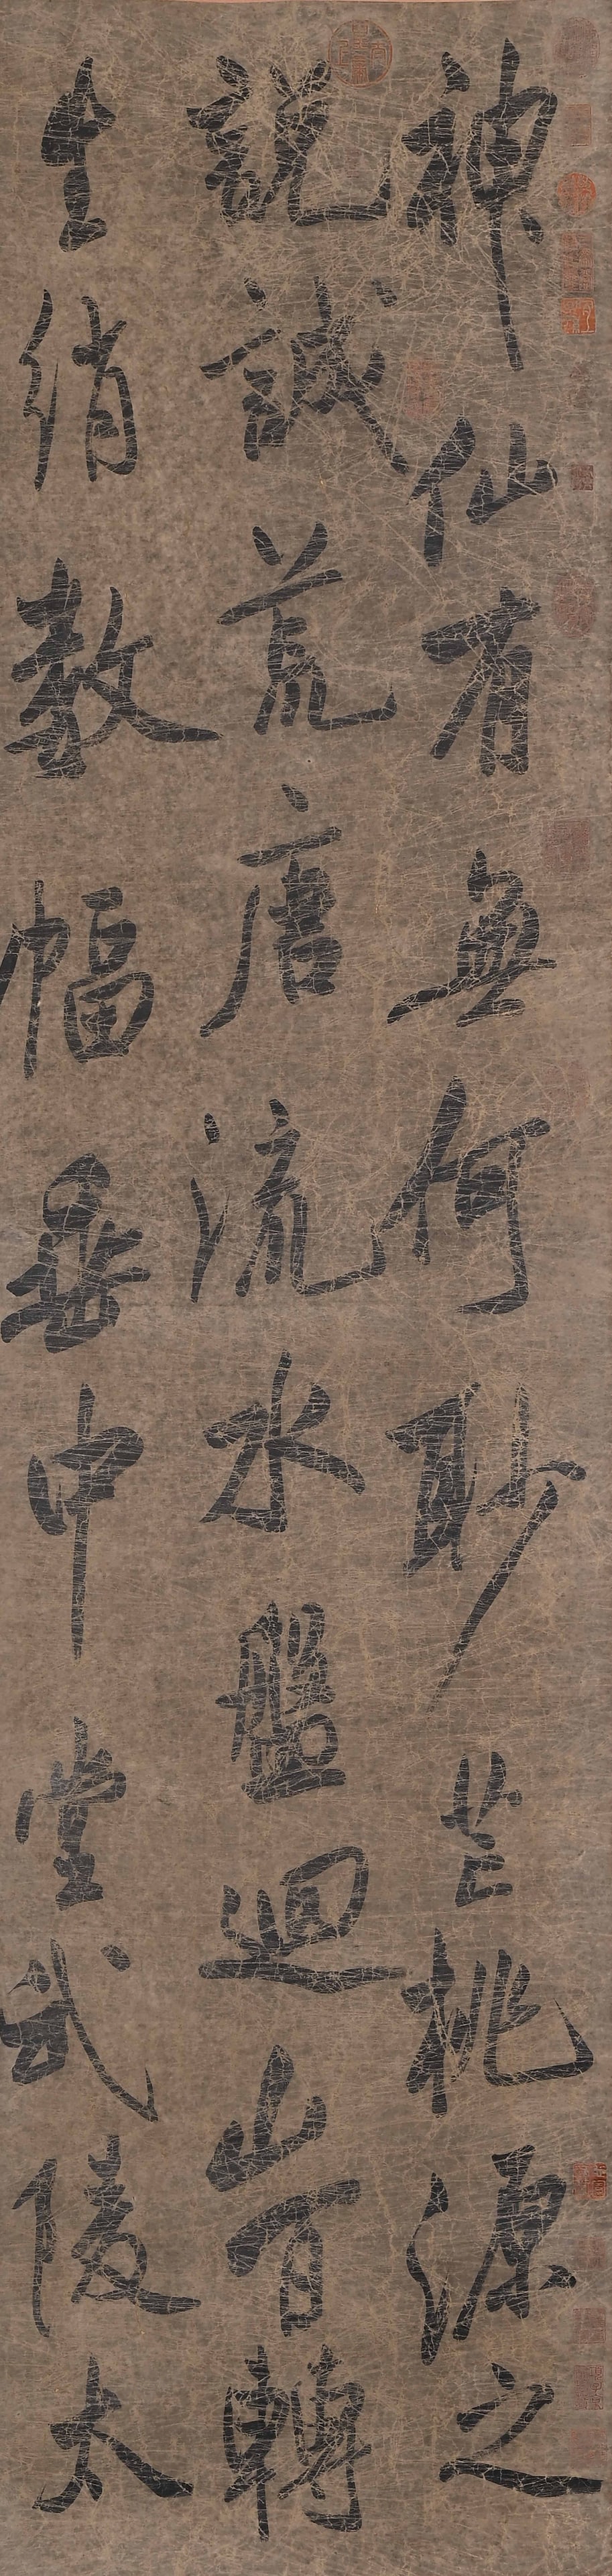 神仙有無何眇芒桃源之
説誠荒唐流水盤迴山百轉
生綃數幅垂中堂武陵太